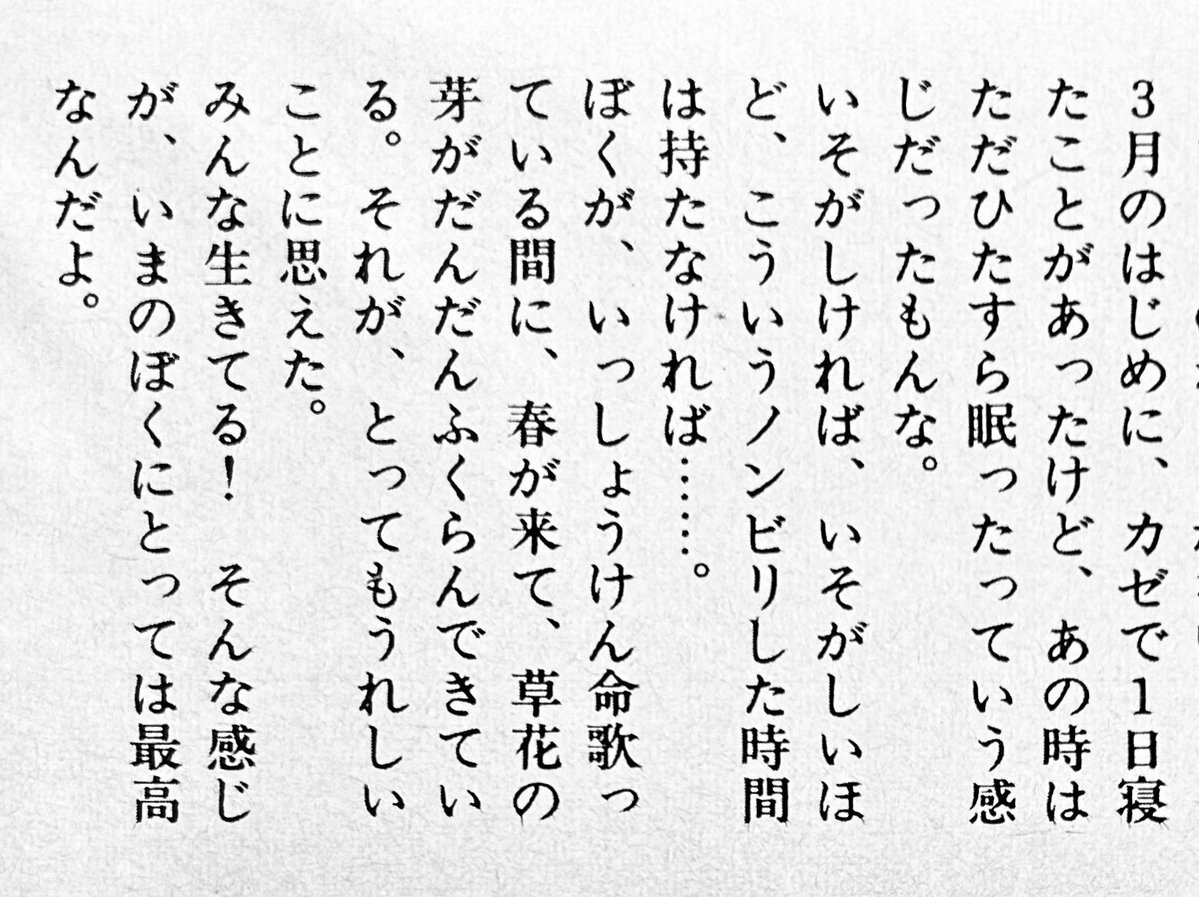 3月のはじめに、カゼで1日寝
たことがあったけど、あの時は
ただひたすら眠ったっていう感
じだったもんな。
いそがしければ、いそがしいほ
ど、こういうノンビリした時間
は持たなければ……。
ぼくが、いっしょうけん命歌っ
ている間に、春が来て、草花の
芽がだんだんふくらんできてい
る。それが、とってもうれしい
ことに思えた。
みんな生きてる！　そんな感じ
が、いまのぼくにとっては最高
なんだよ。